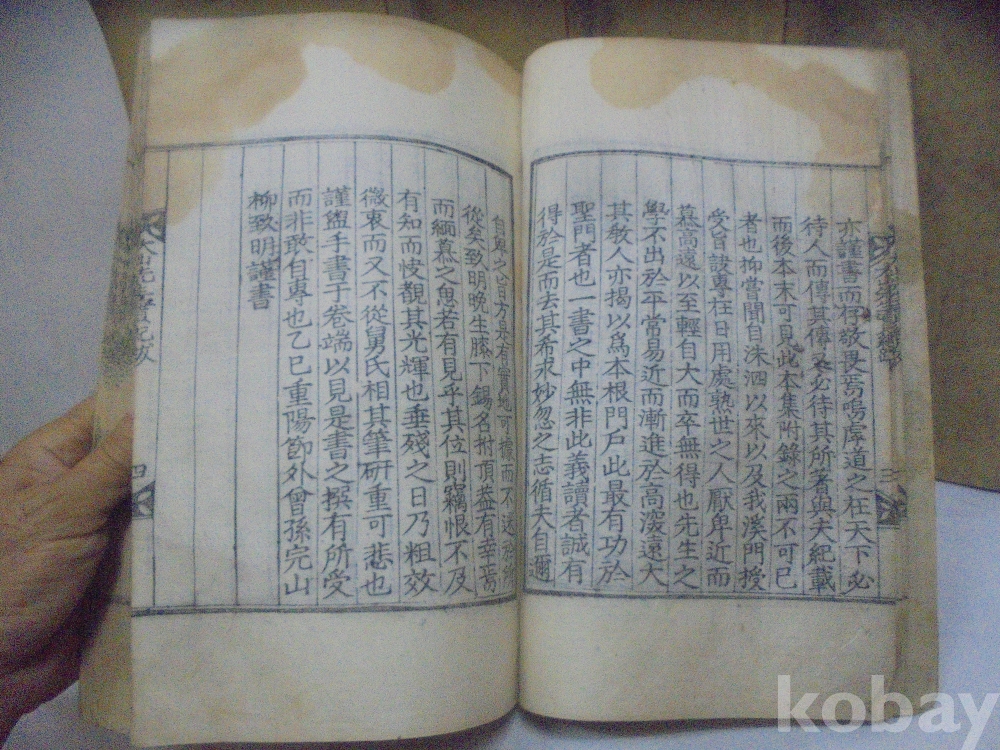 亦謹書而存敬畏焉嗚虖道之在天下必
待人而傳其傳又必待其所著與夫紀載
而後本末可見此本集附錄之兩不可已
者也抑嘗聞自洙泗以來以及我溪門授
受旨訣專在日用處熟世之人厭卑近而
慕高遠以至輕自大而卒無得也先生之
學不出於平常易近而漸進於高深遠大
其敎人亦揭以爲本根門戶此最有功於
聖門者也一書之中無非此義讀者誠有
得於是而去其希求妙忽之志循夫自邇
自卑之旨方是有實地可據而不迷於
從矣致明晚生膝下錫名拊頂盖有幸焉
而緬慕之思若有見乎其位則竊恨不及
有知而

覩其光輝也垂殘之日乃粗效
微衷而又不從舅氏相其筆硏重可悲也
謹盥手書于卷端以見是書之撰有所受
而非敢自專也乙巳重陽節外曾孫完山
柳致明謹書
三
四
kobay